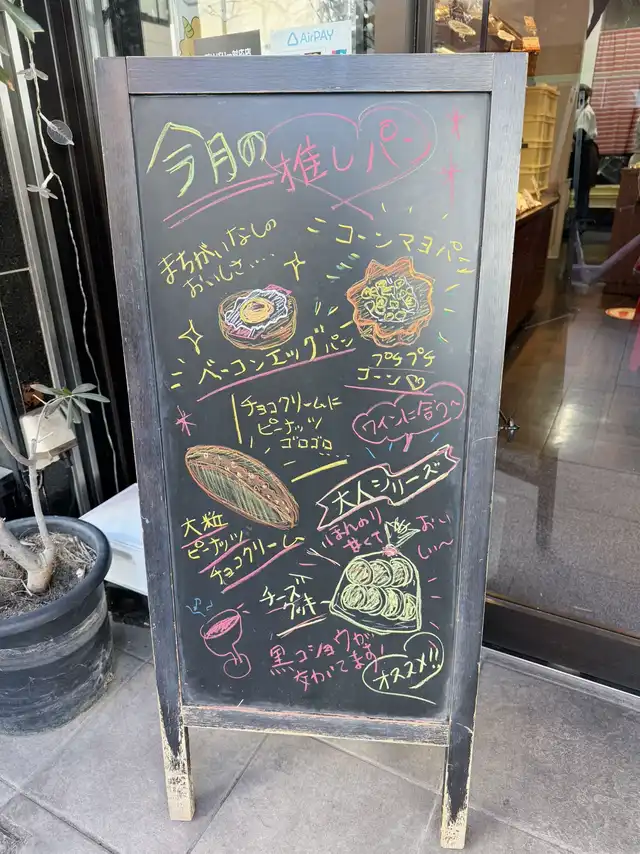 AirPAY
今月の推しパン
まちがいなしの
おいしさ....
ベーコンエッグパン
コーンマヨパン
プチプチ
コーン
チョコクリームに
ピーナッツ
ゴロゴロ
大粒
ピーナッツ
チョコクリーム
ワインに合う〜
大人シリーズ
ほんのり
甘くて
おい
しい〜
チーズ
クッキー
黒コショウが
きいてます!
オススメ!!